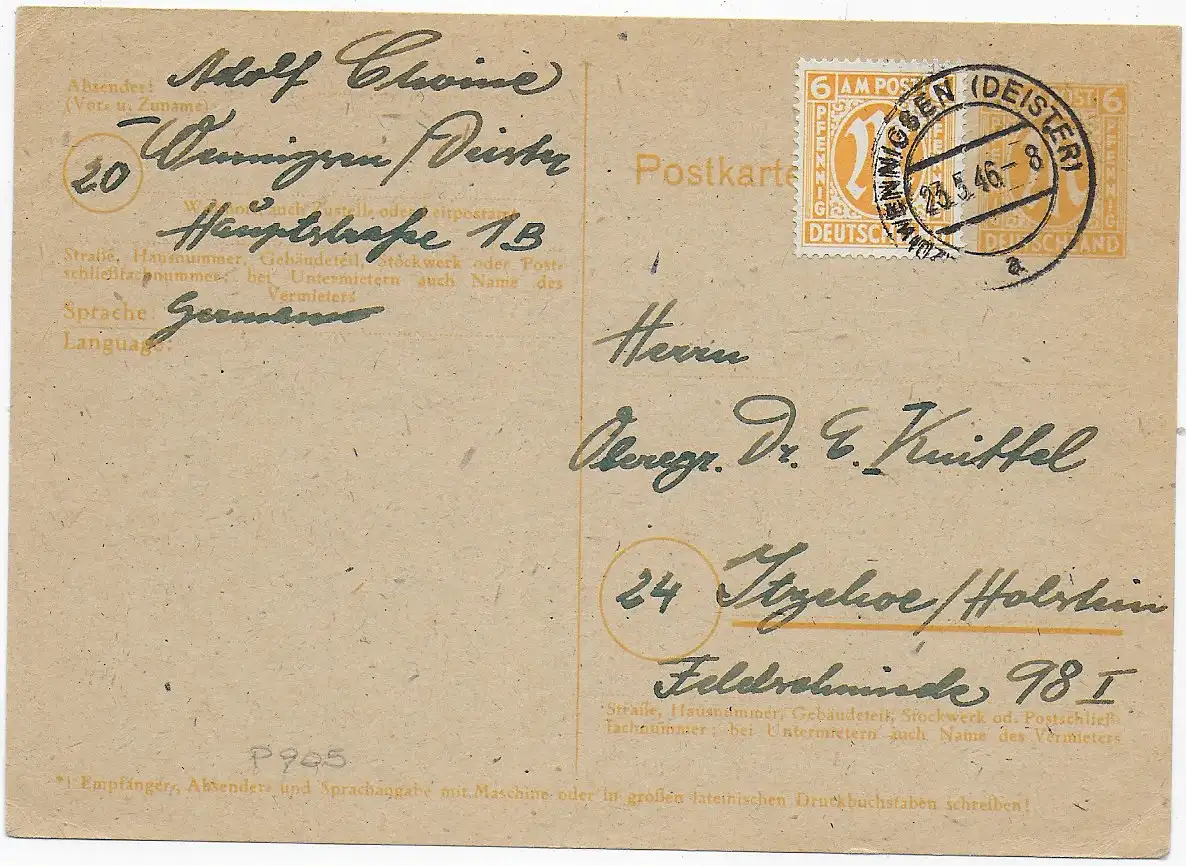 Absender:
(Vor- u. Zuname)
Adolf
20
Wennigsen / Deister
Wohnort, auch Zustell- oder Leitpostamt
Hauptstraße 1B
Straße, Hausnummer, Gebäudeteil, Stockwerk oder Post-
schließfachnummer; bei Untermietern auch Name des
Vermieters
Sprache: German
Language:
Postkarte
6 AM POST
PFENNIG
PFENNIG
DEUTSCHLAND
POST 6
PFENNIG
DEUTSCHLAND
WENNIGSEN (DEISTER)
23.5.46.- 8
a
Herrn
Oberegr. Dr. E. Knittel
24 Itzehoe / Holstein
Feldschmiede 98 I
Straße, Hausnummer, Gebäudeteil, Stockwerk od. Postschließ-
fachnummer; bei Untermietern auch Name des Vermieters
P905
*) Empfänger-, Absender- und Sprachangabe mit Maschine oder in großen lateinischen Druckbuchstaben schreiben!